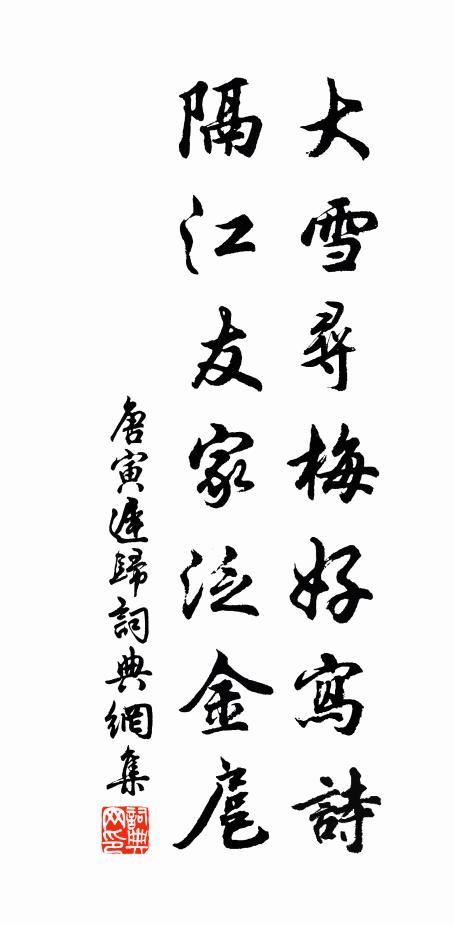 大雪尋梅好寫詩
隔江友家泛金卮
唐寅遲歸詞典網集
詞典
网印